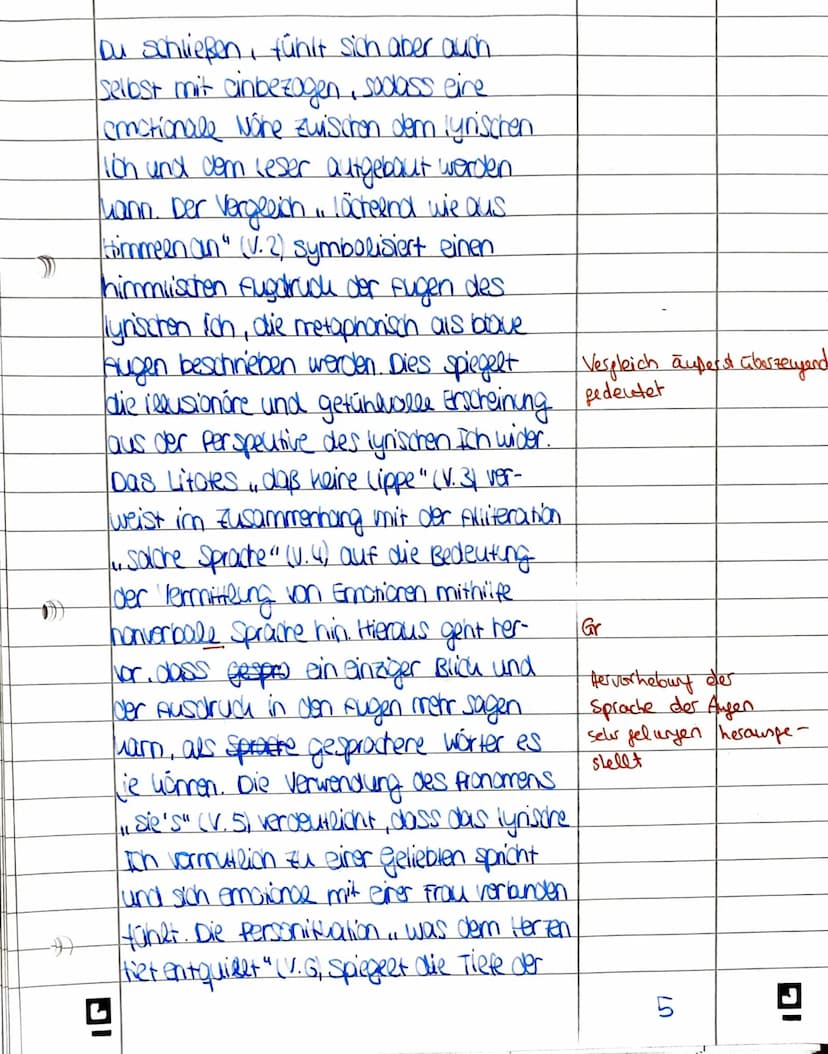 Du schließen, fühlt sich aber auch
selbst mit einbezogen, sodass eine
emotionale Nähe zwischen dem lyrischen
Ich und dem Leser aufgebaut werden
kann. Der Vergleich „lächelnd wie aus
Himmeln an" (V. 2) symbolisiert einen
himmlischen Ausdruck der Augen des
lyrischen Ich, die metaphorisch als blaue
Augen beschrieben werden. Dies spiegelt
Vergleich äußerst überzeugend
die illusionäre und gefühlvolle Erscheinung
gedeutet
aus der Perspektive des lyrischen Ich wider.
Das Litotes „daß keine Lippe" (V. 3) ver-
weist im Zusammenhang mit der Alliteration
„solche Sprache" (V. 4) auf die Bedeutung
der Vermittlung von Emotionen mithilfe
nonverbale Sprache hin. Hieraus geht her-
Gr
vor, dass gespro ein einziger Blick und
Hervorhebung der
der Ausdruck in den Augen mehr sagen
Sprache der Augen
kann, als Sprache gesprochene Wörter es
sehr gelungen herausge-
stellt
je können. Die Verwendung des Pronomens
„sie's" (V. 5) verdeutlicht, dass das lyrische
Ich vermutlich zu einer Geliebten spricht
und sich emotional mit einer Frau verbunden
fühlt. Die Personifikation „was dem Herzen
tief entquillet" (V. 6) spiegelt die Tiefe der
5